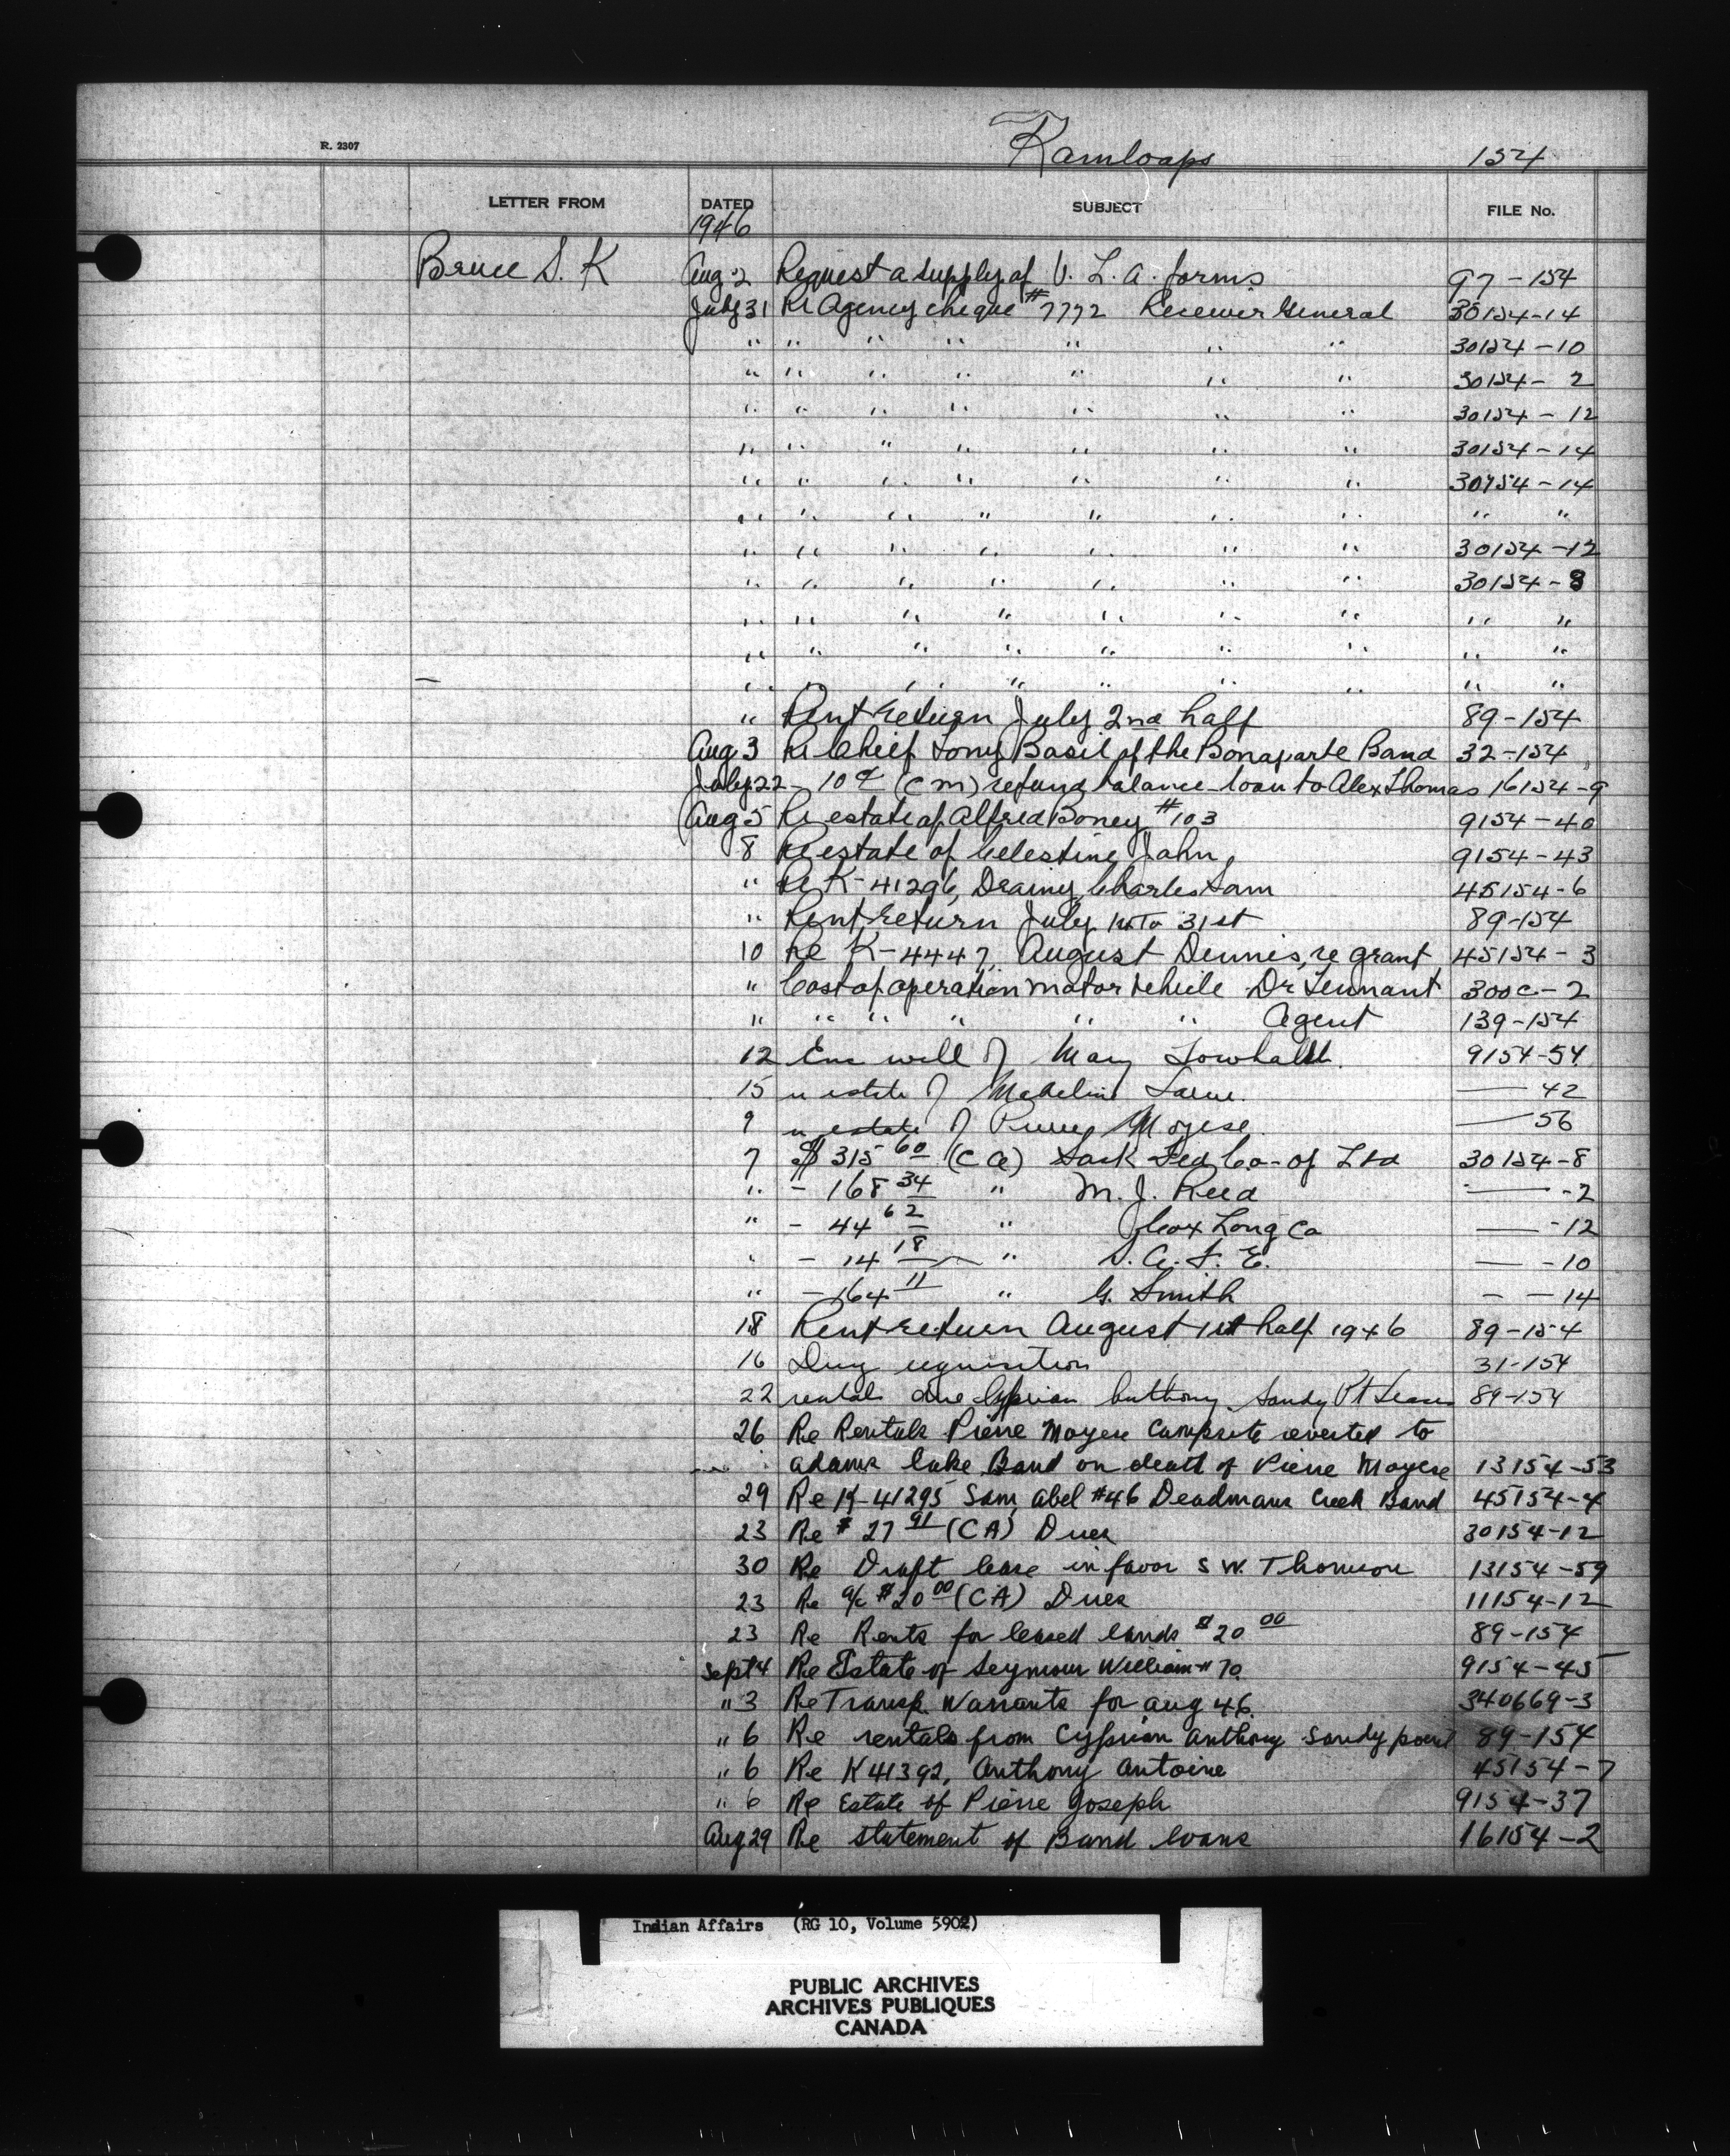 R. 2307
Kamloops 154
LETTER FROM DATED SUBJECT FILE No.
1946
Bruce S. K Aug 2 Request a supply of V. L. A. forms 97-154
July 31 Re Agency cheque #7772 Receiver General 30154-14
" " " " " " " 30154-10
" " " " " " " 30154- 2
" " " " " " " 30154-12
" " " " " " " 30154-14
" " " " " " " 30154-14
" " " " " " " " "
" " " " " " " 30154-12
" " " " " " " 30154-8
" " " " " " " " "
" " " " " " " " "
— " " " " " " " " "
" Rent return July 2nd half 89-154
Aug 3 Re Chief Tony Basil of the Bonaparte Band 32-154
July 22 - 10 (CM) refund balance loan to Alex Thomas 16154-9
Aug 5 Re estate of Alfred Boney #103 9154-40
8 Re estate of Celestine John 9154-43
" Re K-41296, Charles Sam 45154-6
" Rent return July to 31st 89-154
10 Re K-4447, August Dennis, re grant 45154-3
" Cost of operation motor vehicle Dr Tennant 300C-2
" " " " " " Agent 139-154
12 will of Mary 9154-54
15 estate of Madeline — 42
9 estate of Pierre Moyese — 56
7 $315 60 (CA) Sask Fed Co-op Ltd 30154-8
" - 168 34 " M. J. Reed — -2
" - 44 62 " Cox Long Co — -12
" - 14 18 " — -10
" - 164 11 " G. Smith — — 14
18 Rent return August 1st half 1946 89-154
16 Drug requisition 31-154
22 rental due Cyprian Anthony Sandy Pt Leases 89-154
26 Re Rentals Pierre Moyese Campsite reverted to
Adams Lake Band on death of Pierre Moyese 13154-53
29 Re K-41295 Sam, Abel #46 Deadmans Creek Band 45154-4
23 Re $27 91 (CA) Dues 30154-12
30 Re Draft lease in favor S W. Thomson 13154-59
23 Re a/c $20 00 (CA) Dues 11154-12
23 Re Rents for leased lands $20 00 89-154
Sept 4 Re Estate of Seymour William #70 9154-45
" 3 Re Transp. Warrants for Aug 46. 340669-3
" 6 Re rentals from Cyprian Anthony Sandy point 89-154
" 6 Re K41392, Anthony Antoine 45154-7
" 6 Re Estate of Pierre Joseph 9154-37
Aug 29 Re statement of Band loans 16154-2
Indian Affairs (RG 10, Volume 5902)
PUBLIC ARCHIVES
ARCHIVES PUBLIQUES
CANADA